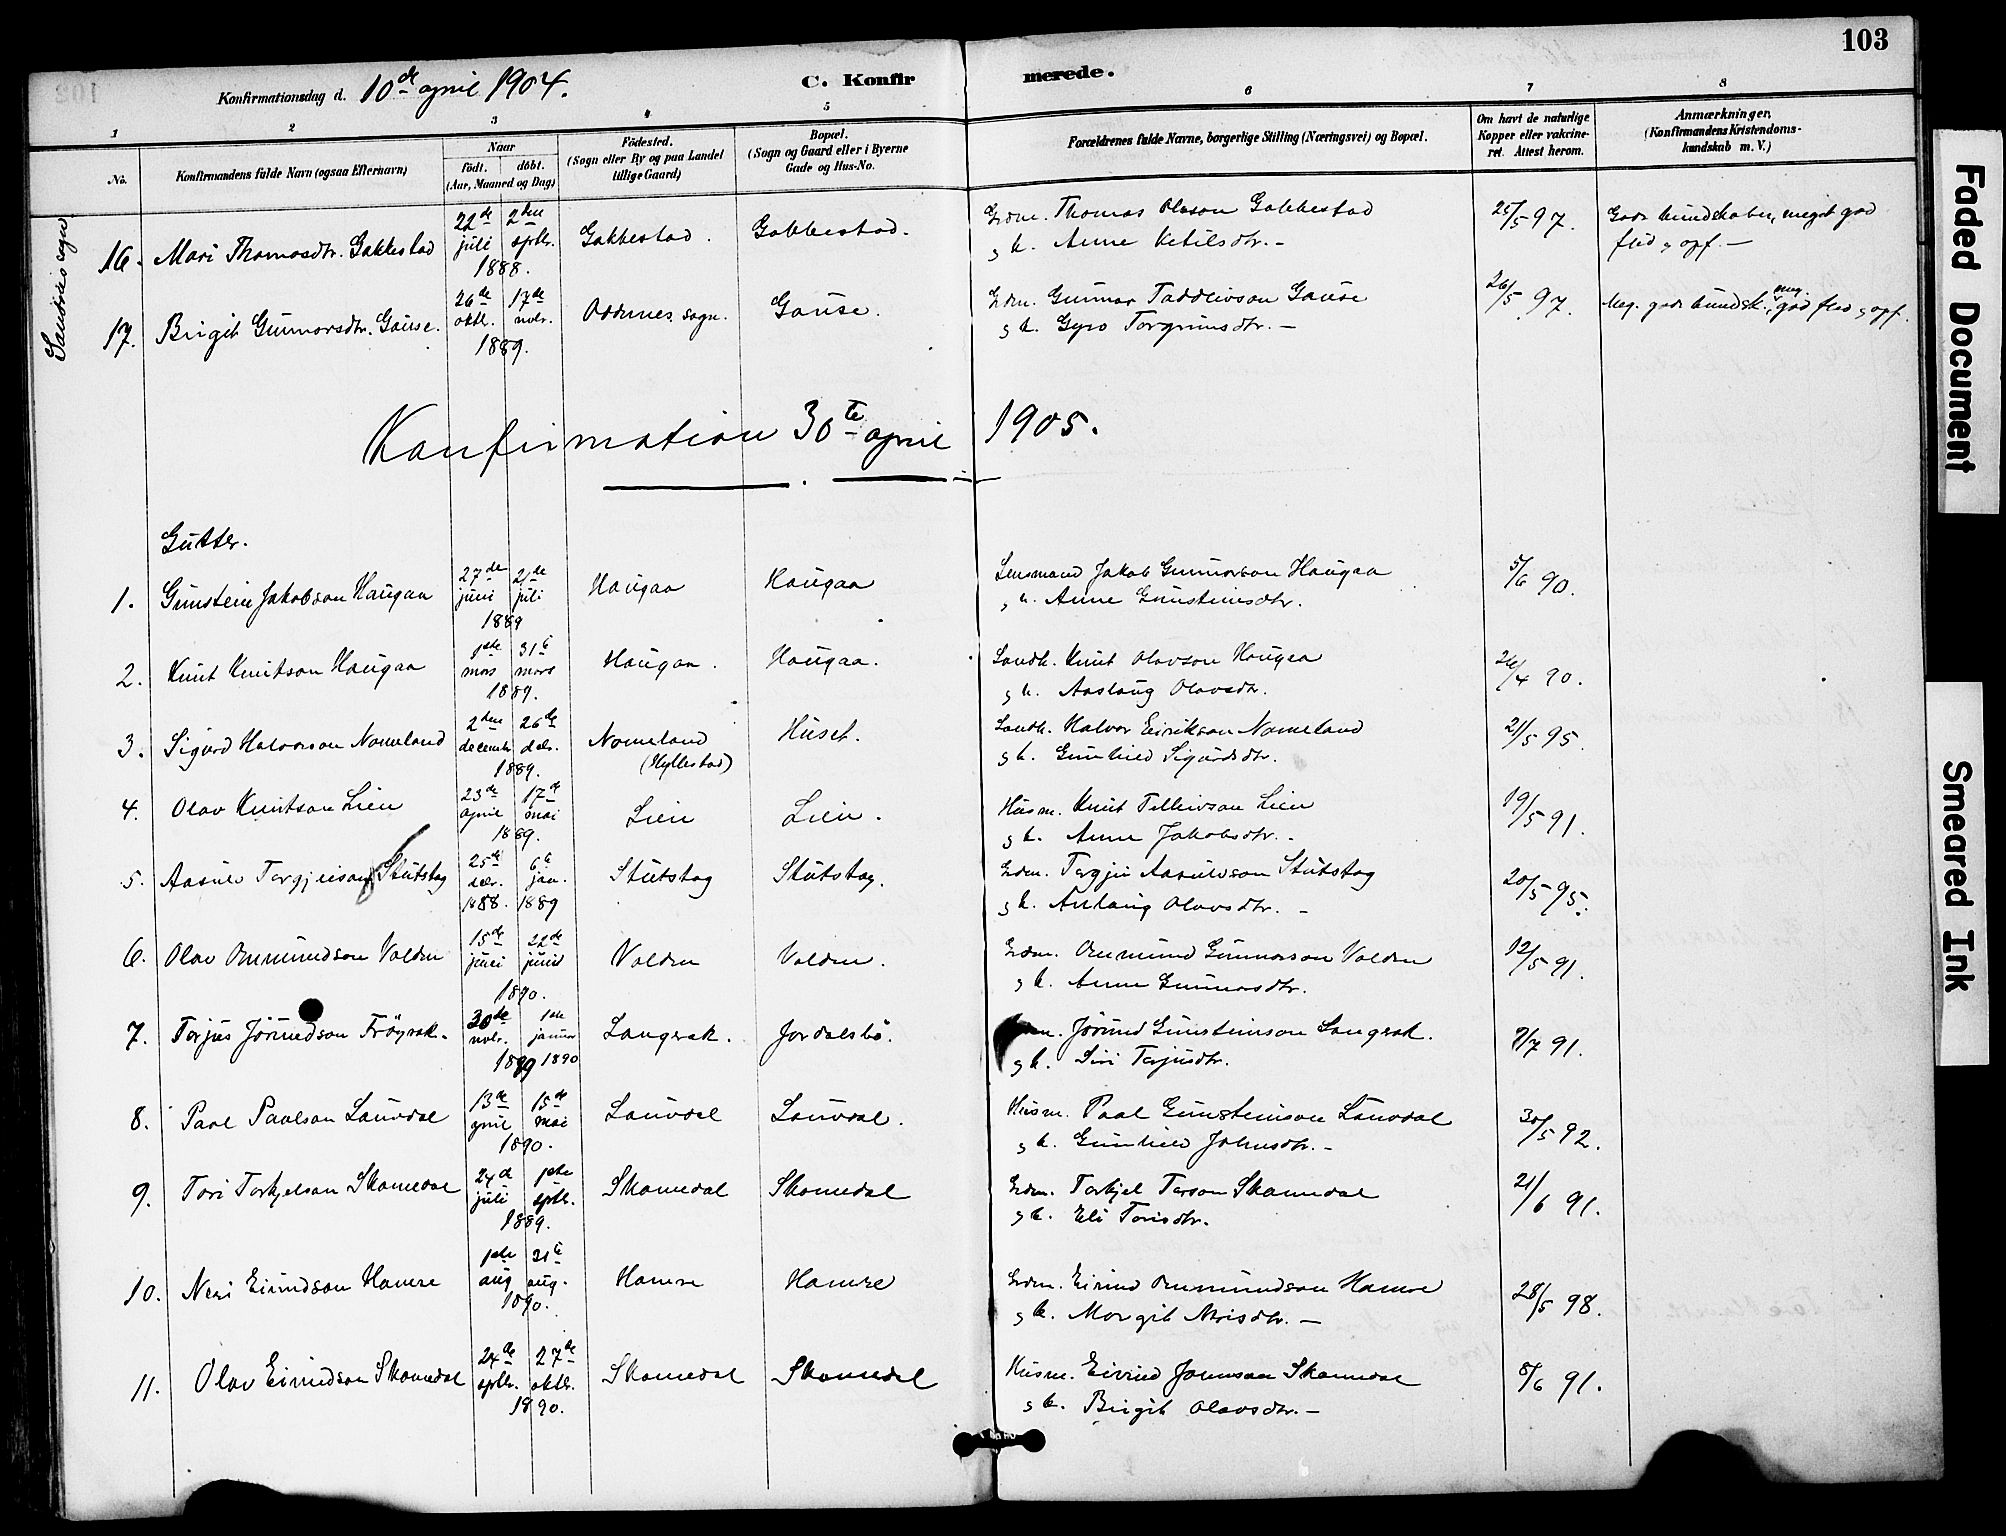 103
Konfirmationsdag d. 10de april 1904.
C. Konfirmerede.
1 2 3 4 5 6 7 8
No.
Konfirmandens fulde Navn (ogsaa Efternavn)
Naar
født. døbt.
(Aar, Maaned og Dag)
Fødested.
(Sogn eller By og paa Landet
tillige Gaard)
Bopæl.
(Sogn og Gaard eller i Byerne
Gade og Hus-No.
Forældrenes fulde Navne, borgerlige Stilling (Næringsvei) og Bopæl.
Om havt de naturlige
Kopper eller vakcine-
ret. Attest herom.
Anmærkninger.
(Konfirmandens Kristendoms-
kundskab m. V.)
16. Mari Thomasdtr. Gakkestad 22de juli 2den sptbr. 1888. Gakkestad. Gakkestad. Grdm. Thomas Olsson Gakkestad
g k. Anne Ketilsdtr. – 25/5 97. Gode kundskaber, meget god
flid og opf. –
17. Birgit Gunnarsdtr. Gause. 26de oktbr. 17de novbr. 1889. Oddernes sogn. Gause. Grdm. Gunnar Taddeivson Gause
g k. Gyro Torgrimsdtr. – 26/5 97. Meg. gode kundsk., meg. god flid og opf.
Konfirmation 30te april 1905.
Gutter.
1. Gunstein Jakobson Haugaa 27de juni 21de juli 1889 Haugaa Haugaa Lensmand Jakob Gunnarson Haugaa
g k. Anne Gunsteinsdtr. 5/6 90.
2. Knut Knutson Haugaa 1ste mars 31te mars 1889. Haugaa. Haugaa. Landh. Knut Olavson Haugaa
g k. Aaslaug Olavsdtr. 26/4 90.
3. Sigurd Halvorson Nomeland 2den decembr. 26de decbr. 1889. Nomeland
(Hyllestad) Huset. Landh. Halvor Eirikson Nomeland
g k. Gunhild Sigurdsdtr. 21/5 95.
4. Olav Knutson Lien 23de april 17de mai 1889. Lien Lien. Husm. Knut Telleivson Lien
g k. Anne Jakobsdtr. – 19/5 91.
5. Aasulv Torgjeison Stutstog 25de decbr. 1888. 6te jan. 1889 Stutstog Stutstog. Grdm. Torgjei Aasulvson Stutstog
g k. Anlaug Olavsdtr. – 20/5 95.
6. Olav Ommundson Valden 15de juni 22de juni 1890. Valden Valden. Grdm. Ommund Gunnarson Valden
g k. Anne Gunnarsdtr. 12/5 91.
7. Torjus Jörundson Fröysak. 30de novbr. 1889 1ste januar 1890 Langrak. Jordalsbö. Jörund Gunsteinson Langrak.
g k. Siri Torjusdtr. 9/7 91.
8. Paal Paalson Lauvdal 13de april 15de mai 1890. Lauvdal Lauvdal. Husm. Paal Gunsteinson Lauvdal
g k. Gunhild Johnsdtr. – 30/5 92.
9. Tori Torkjelson Skomedal 24de juli 1ste sptbr. 1889. Skomedal Skomedal Grdm. Torkjel Torson Skomedal
g k. Eli Torisdtr. 21/6 91.
10. Neri Eivindson Hamre 1ste aug 31te aug. 1890. Hamre Hamre Grdm. Eivind Ommundson Hamre
g k. Margit Nerisdtr. – 28/5 98.
11. Olav Eivindson Skomedal 24de sptbr. 27de oktbr. 1890. Skomedal Skomedal Husm. Eivind Jonnson Skomedal
g k. Birgit Olavsdtr. – 8/6 91.
Faded Document
Smeared Ink